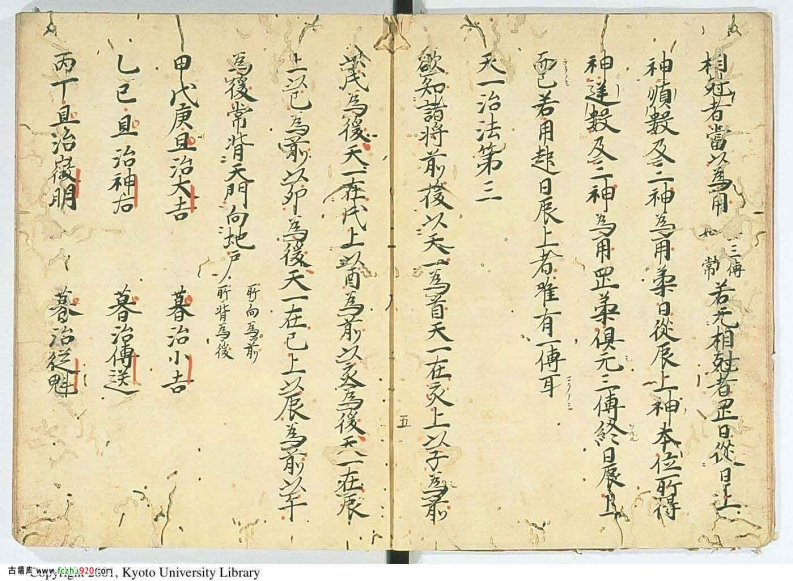 相尅者當以為用 三傳如常 若无相尅者罡日從日上
神順數及二神為用蕐日從辰上神本位所得
神逆數及二神為用罡蕐俱无三傳終日辰上
而已若用起日辰上者唯有一傳耳
天一治法第三
欲知諸将前後以天一為首天一在亥上以子為前
以戌為後天一在戌上以酉為前以亥為後天一在辰
上以巳為前以卯為後天一在巳上以辰為前以午
為後常背天門向地戸 所向為前所背為後
甲戊庚旦治大吉 暮治小吉
乙己旦治神右 暮治傳送
丙丁旦治徴明 暮治從魁
五
古籍库 www.fczhu920.com
Copyright 2001, Kyoto University Library